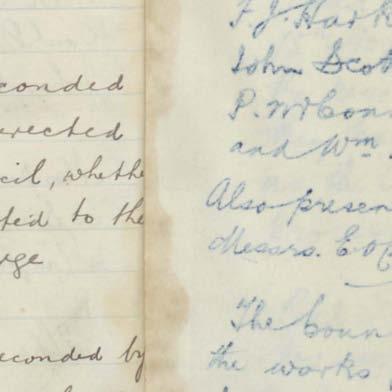 conded
erected
cil, whethe
ted to the
rge
econded by
F. J. Hark
John Scot
P. McCon
and Wm.
Also presen
Messrs. E
The Coun
the works